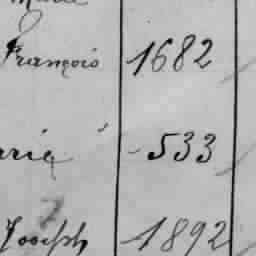 François 1682
arie - 533
Joseph 1892